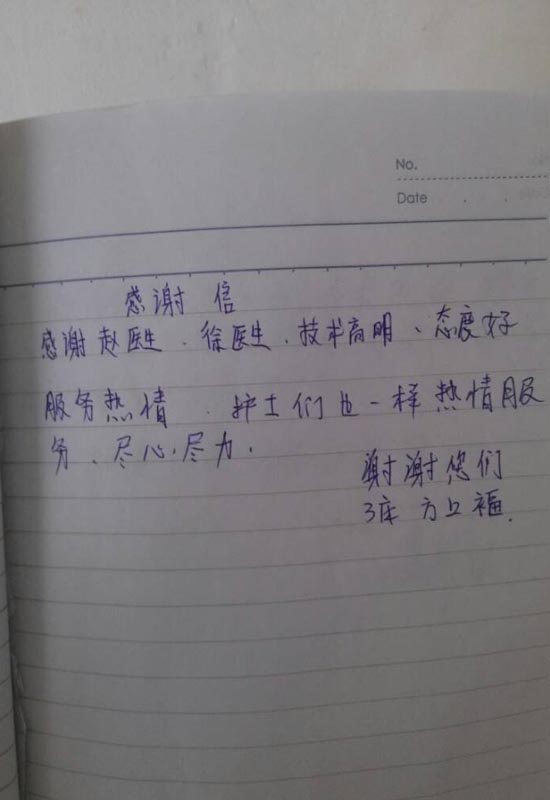 No.
Date . .
感谢 信
感谢赵医生、徐医生、技术高明、态度好
服务热情 、护士们也一样热情服
务、尽心、尽力.
谢谢您们
3床 方上福.